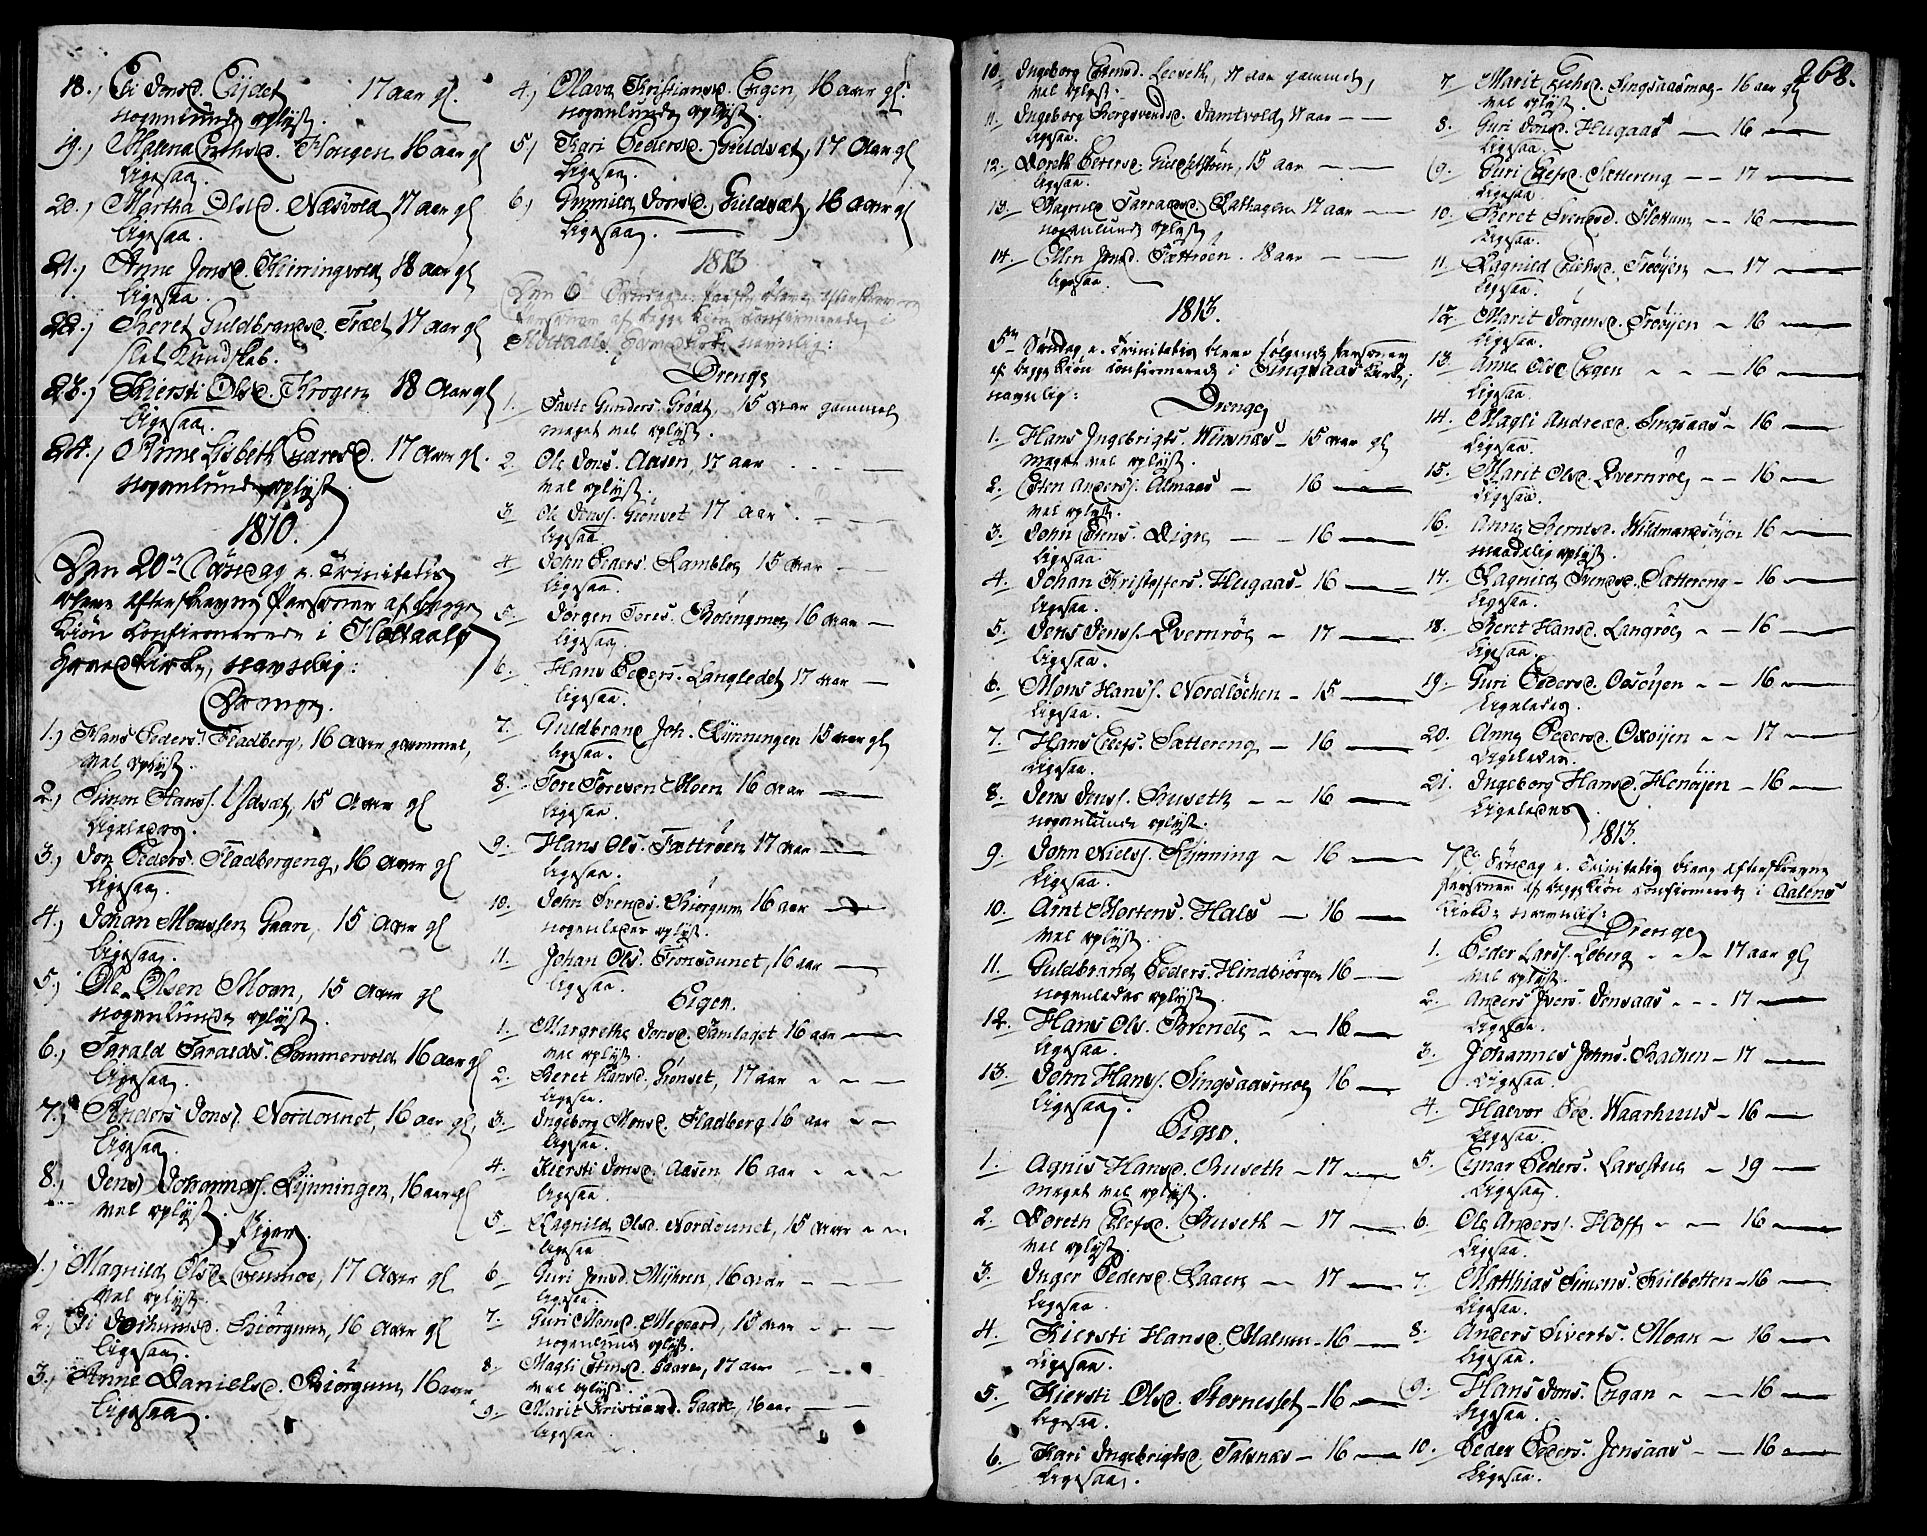 18.) Eli Jonsd. Eijdet 17 aar gl.
nogenlunde oplyst.
19.) Malena Erichsd. Hougen 16 aar gl
Ligesaa.
20.) Martha Olsd. Næsvold, 17 aar gl
Ligesaa.
21.) Anne Jensd. Kierringvold 18 aar gl
Ligesaa.
22.) Beret Guldbrandsd. Træet 17 aar gl
slet Kundskab.
23.) Kiersti Olsd. Krogen 18 aar gl
Ligesaa.
24.) Anne Lisbeth Larsd. 17 aar gl.
nogenlunde oplyst
1810.
Den 20de Söndag e. Trinitatis
bleve efterskrevne Personer af begge
Kiön confirmerede i Holtaals
Hovedkirke, navnlig:
Drenge.
1.) Hans Peders. Fladberg, 16 aar gammel,
vel oplyst.
2.) Simon Hanss. Ydsæt, 15 aar gl
Ligeledes.
3.) Jon Peders. Fladbergeng, 16 aar gl
Ligesaa.
4.) Johan Monssen Gaare, 15 aar gl
Ligesaa.
5.) Ole Olsen Moan, 15 aar gl
nogenlunde oplyst.
6.) Tarald Taralds. Sommervold 16 aar gl
Ligesaa.
7.) Anders Jons. Nordaunet, 16 aar gl
Ligesaa.
8.) Jens Johannes. Rynningen, 16 aar gl
vel oplyst
Piger.
1.) Magnild Olsd. Evenmoe, 17 aar gl
vel oplyst.
2.) Eli Joensd. Biörgum, 16 aar gl
Ligesaa.
3.) Anne Danielsd. Biörgum, 16 aar
Ligesaa.
4.) Olava Kristiansd. Engen, 16 aar gl.
nogenlunde oplyst.
5.) Kari Pedersd. Guldsæt, 17 Aar gl
Ligesaa.
6.) Gunnild Jonsd. Guldsæt, 16 aar gl
Ligesaa.
1813
Den 6 Söndag e. Paaske bleve efterskrevne
Personer af begge Kiön confirmerede i
Holtaals Hovedkirke navnlig:
Drenge
1. Saste Gunders. Grödt, 15 aar gammel
meget vel oplyst.
2. Ole Jons. Aasen, 17 aar
vel oplyst.
3. Ole Jonss. Grönset 17 aar
Ligesaa.
4. John Peders. Ramblen 15 aar
Ligesaa.
5. Jörgen Tores. Bolingmoe 16 aar
Ligesaa.
6. Hans Peders. Langledet 17 aar
Ligesaa.
7. Guldbrand Joh. Rynningen 15 aar gl
Ligesaa.
8. Tore Toresen Moen 16 aar
Ligesaa.
9. Hans Ols. Fættröen 17 aar
Ligesaa.
10. John Svends. Biörgum 16 aar
nogenledes oplyst.
11. Johan Ols. Tronsounet, 16 aar
Ligesaa.
Piger.
1. Margrethe Jonsd. Samlaget 16 aar
vel oplyst.
2. Beret Hansd. Grönset, 17 aar
Ligesaa.
3. Ingeborg Monsd. Fladberg 16 aar
Ligesaa.
4. Kiersti Jonsd. Aasen 16 aar
Ligesaa.
5. Ragnild Olsd. Nordounet, 15 aar
Ligesaa
6. Guri Jonsd. Myhren, 16 aar
Ligesaa.
7. Guri Monsd. Megaard, 15 aar
nogenlunde oplyst.
8. Magli Stensd. Gaaren, 17 aar
vel oplyst.
9. Marit Kristiansd. Gaare, 16 aar
Ligesaa.
268.
10. Ingeborg Estensd. Leeveth, 17 aar gammel,
vel oplyst.
11. Ingeborg Borgsvendsd. Damtvold 17 aar
Ligesaa.
12. Doreth Peversd. Guldetströen, 15 aar
Ligesaa.
13. Magnild Taraldsd. Rathagen 17 aar
nogenlunde oplyst
14. Ellen Jonsd. Fættröen. 18 aar
Ligesaa.
1813.
5te Söndag e. Trinitatis bleve fölgende Personer
af begge Kiön confirmerede i Singsaas Kirke,
navnlig:
Drenge
1. Hans Ingebrigts. Winsnæs 15 aar gl
meget vel oplyst.
2. Esten Anderss. Almaas 16
vel oplyst.
3. John Estens. Digre 16
Ligesaa.
4. Johan Kristoffers. Hugaas 16
Ligesaa.
5. Jens Jenss. Qvernröe 17
Ligesaa.
6. Mons Hanss. Nordlöchen 15
Ligesaa.
7. Hans Elefs. Sættereng 16
Ligesaa.
8. Jens Jens. Buseth 16
nogenlunde oplyst.
9. John Niels. Rynning 16
Ligesaa.
10. Arnt Mortens. Hals 16
vel oplyst.
11. Guldbrand Peders. Hindbiörgen 16
nogenledes oplyst.
12. Hans Ols. Brende 16
Ligesaa.
13. John Hans. Singsaasmoe 16
Ligesaa.
Piger.
1. Agnis Hansd. Buseth 17
meget vel oplyst.
2. Doreth Elefsd. Buseth 17
vel oplyst.
3. Inger Pedersd. Raaen 17
Ligesaa.
4. Kiersti Hansd. Malum 16
Ligesaa.
5. Kiersti Olsd. Stornesset 16
Ligesaa.
6. Kari Ingebrigtsd. Talsnæs 16
Ligesaa.
7. Marit Erichsd. Singsaasmoe 16 aar gl
vel oplyst.
8. Guri Jonsd. Hugaas 16
Ligesaa.
9. Guri Elefsd. Sættereng 17
Ligesaa.
10. Beret Svendsd. Flottum 16
Ligesaa.
11. Ragnild Erichsd. Fröyen 17
Ligesaa.
12. Marit Jörgensd. Fröyen 16
Ligesaa.
13. Anne Olsd. Engen 16
Ligesaa.
14. Magli Andersd. Singsaas 16
Ligesaa.
15. Marit Olsd. Qvernröe 16
Ligesaa.
16. Anne Berntsd. Wildmandsöyen 16
maadelig oplyst.
17. Ragnild Svendsd. Sættereng 16
Ligesaa.
18. Beret Hansd. Langröe 16
Ligesaa.
19. Guri Pedersd. Oxöyen 16
Ligeledes.
20. Anne Pedersd. Oxöyen 17
Ligeledes.
21. Ingeborg Hansd. Henöyen 16
Ligeledes
1813.
7de Söndag e. Trinitatis bleve efterskrevne
Personer af begge Kiön confirmerede i Aalens
Kirke, navnlig:
Drenge
1. Peder Larss. Löberg 17 aar gl
vel oplyst.
2. Anders Ivers. Jensaas 17
Ligesaa.
3. Johannes Johns. Bachen 17
Ligesaa.
4. Halvor Ped. Waarhuus 16
Ligesaa.
5. Ejnar Peders. Larsstue 19
Ligesaa.
6. Ole Anders. Hoff 16
Ligesaa.
7. Matthias Simens. Kulbotten 16
Ligesaa.
8. Anders Siverts. Moan 16
Ligesaa.
9. Hans Jons. Engan 16
Ligesaa.
10. Peder Peders. Jensaas 16
Ligesaa.